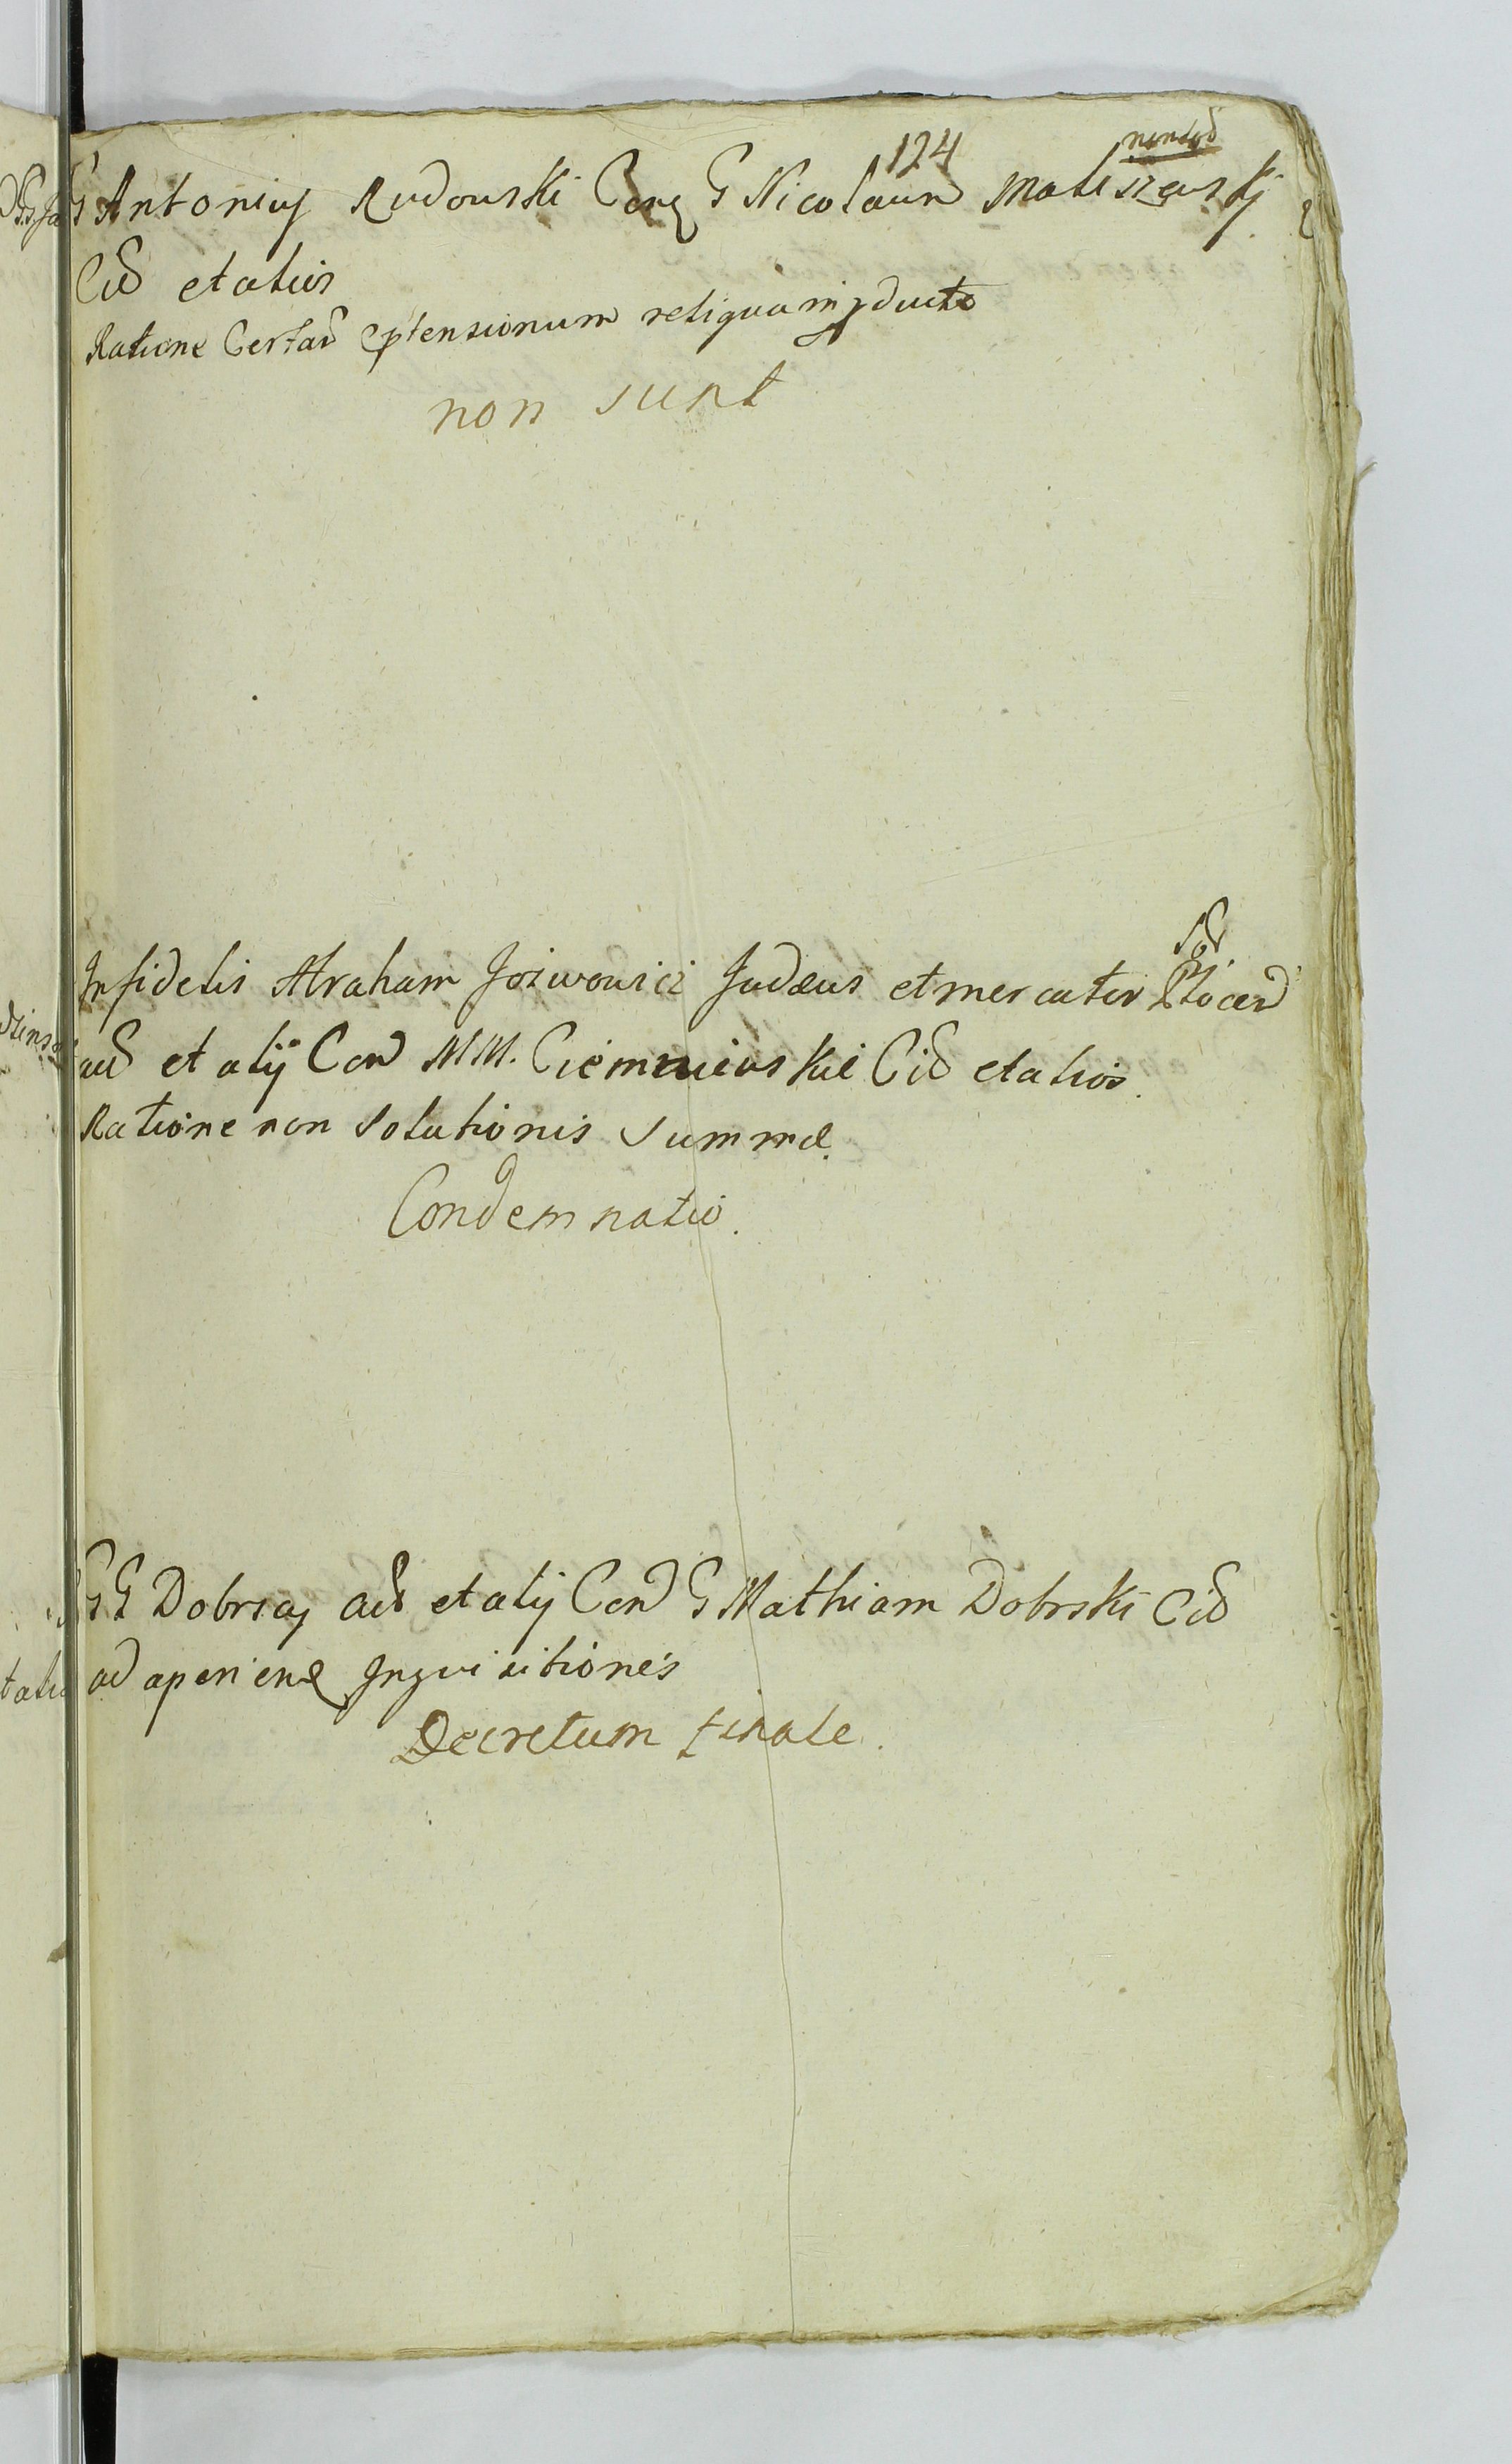 124
G Antonius Rudowski Con G Nicolaum Maliszewskj
Cit et alios
Ratione Certar prtensionum reliqua in prducto
non sunt
Infidelis Abraham Jozwowicz Judæus et mercator Plocen
act et alij Con MM. Ciemniewskie Cit et alios.
Ratione non Solutionis Summæ.
Condemnatio.
GG Dobrscy act et alij Con G Mathiam Dobrski Cit
ad aperiend Inquisitiones
Decretum finale.